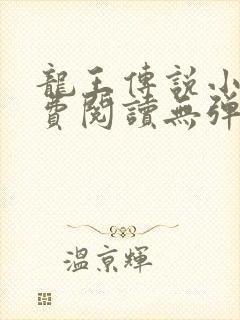 龍王傳說小
費閱讀無彈
溫京輝